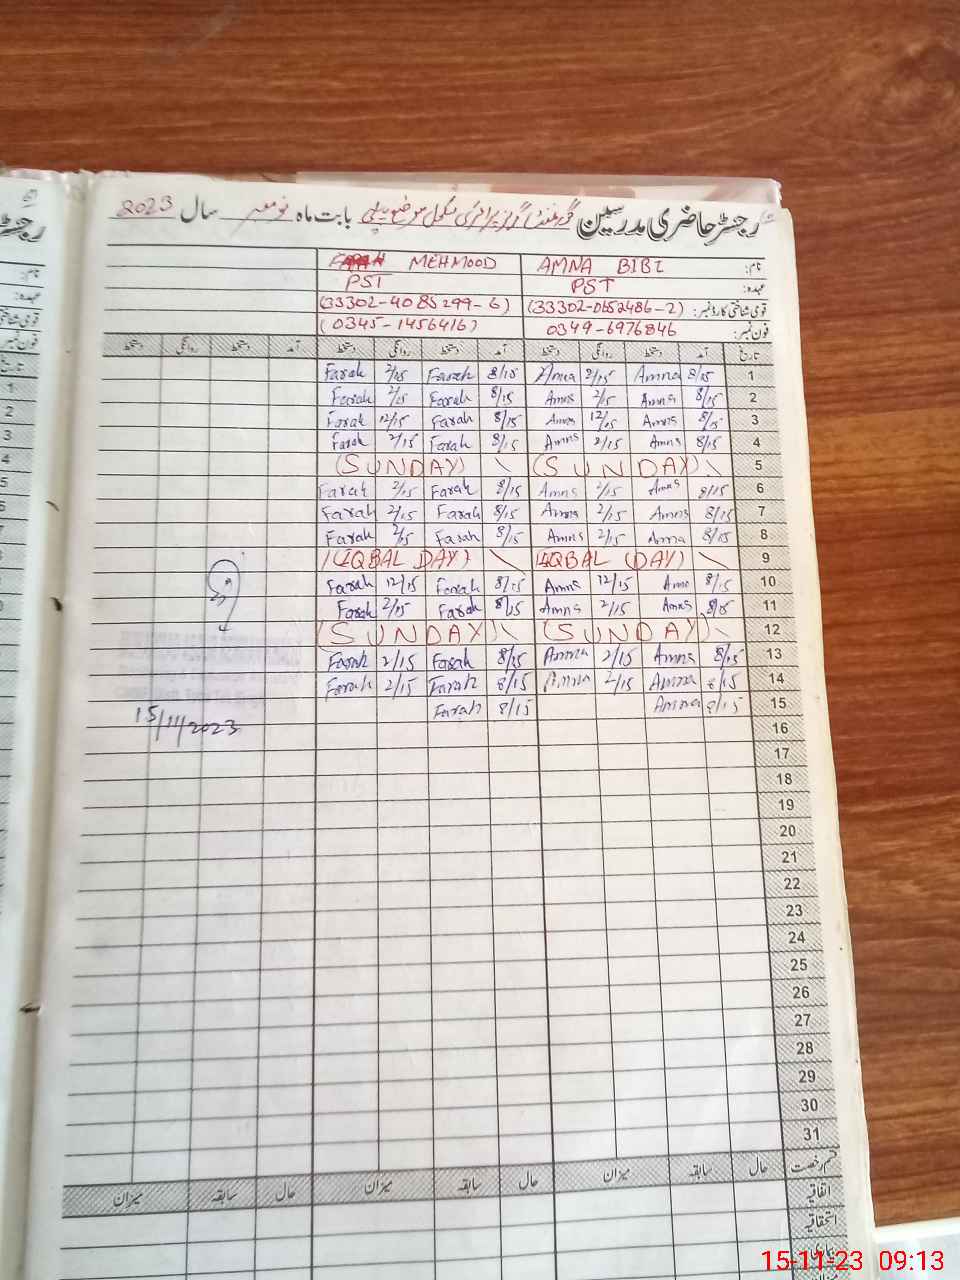 رجسٹر حاضری مدرسین گورنمنٹ گرلز پرائمری سکول موضع بابت ماہ نومبر سال 2023
نام: AMNA BIBI FARAH MEHMOOD
عہدہ: PST PST
قومی شناختی کارڈ نمبر: (33302-0652486-2) (33302-4085299-6)
فون نمبر: 0349-6976846 (0345-1456416)
تاریخ آمد دستخط روانگی دستخط آمد دستخط روانگی دستخط آمد دستخط روانگی دستخط
1 8/15 Amna 2/15 Amna 8/15 Farah 2/15 Farah
2 8/15 Amna 2/15 Amna 8/15 Farah 2/15 Farah
3 8/15 Amna 12/15 Amna 8/15 Farah 12/15 Farah
4 8/15 Amna 2/15 Amna 8/15 Farah 2/15 Farah
5 (SUNDAY) (SUNDAY)
6 8/15 Amna 2/15 Amna 8/15 Farah 2/15 Farah
7 8/15 Amna 2/15 Amna 8/15 Farah 2/15 Farah
8 8/15 Amna 2/15 Amna 8/15 Farah 2/15 Farah
9 (IQBAL DAY) (IQBAL DAY)
10 8/15 Amna 12/15 Amna 8/15 Farah 12/15 Farah
11 8/15 Amna 2/15 Amna 8/15 Farah 2/15 Farah
12 (SUNDAY) (SUNDAY)
13 8/15 Amna 2/15 Amna 8/15 Farah 2/15 Farah
14 8/15 Amna 2/15 Amna 8/15 Farah 2/15 Farah
15 8/15 Amna 8/15 Farah
15/11/2023
16
17
18
19
20
21
22
23
24
25
26
27
28
29
30
31
قسم رخصت حال سابقہ میزان حال سابقہ میزان حال سابقہ میزان
اتفاقیہ
استحقاقیہ
بیماری
15-11-23 09:13